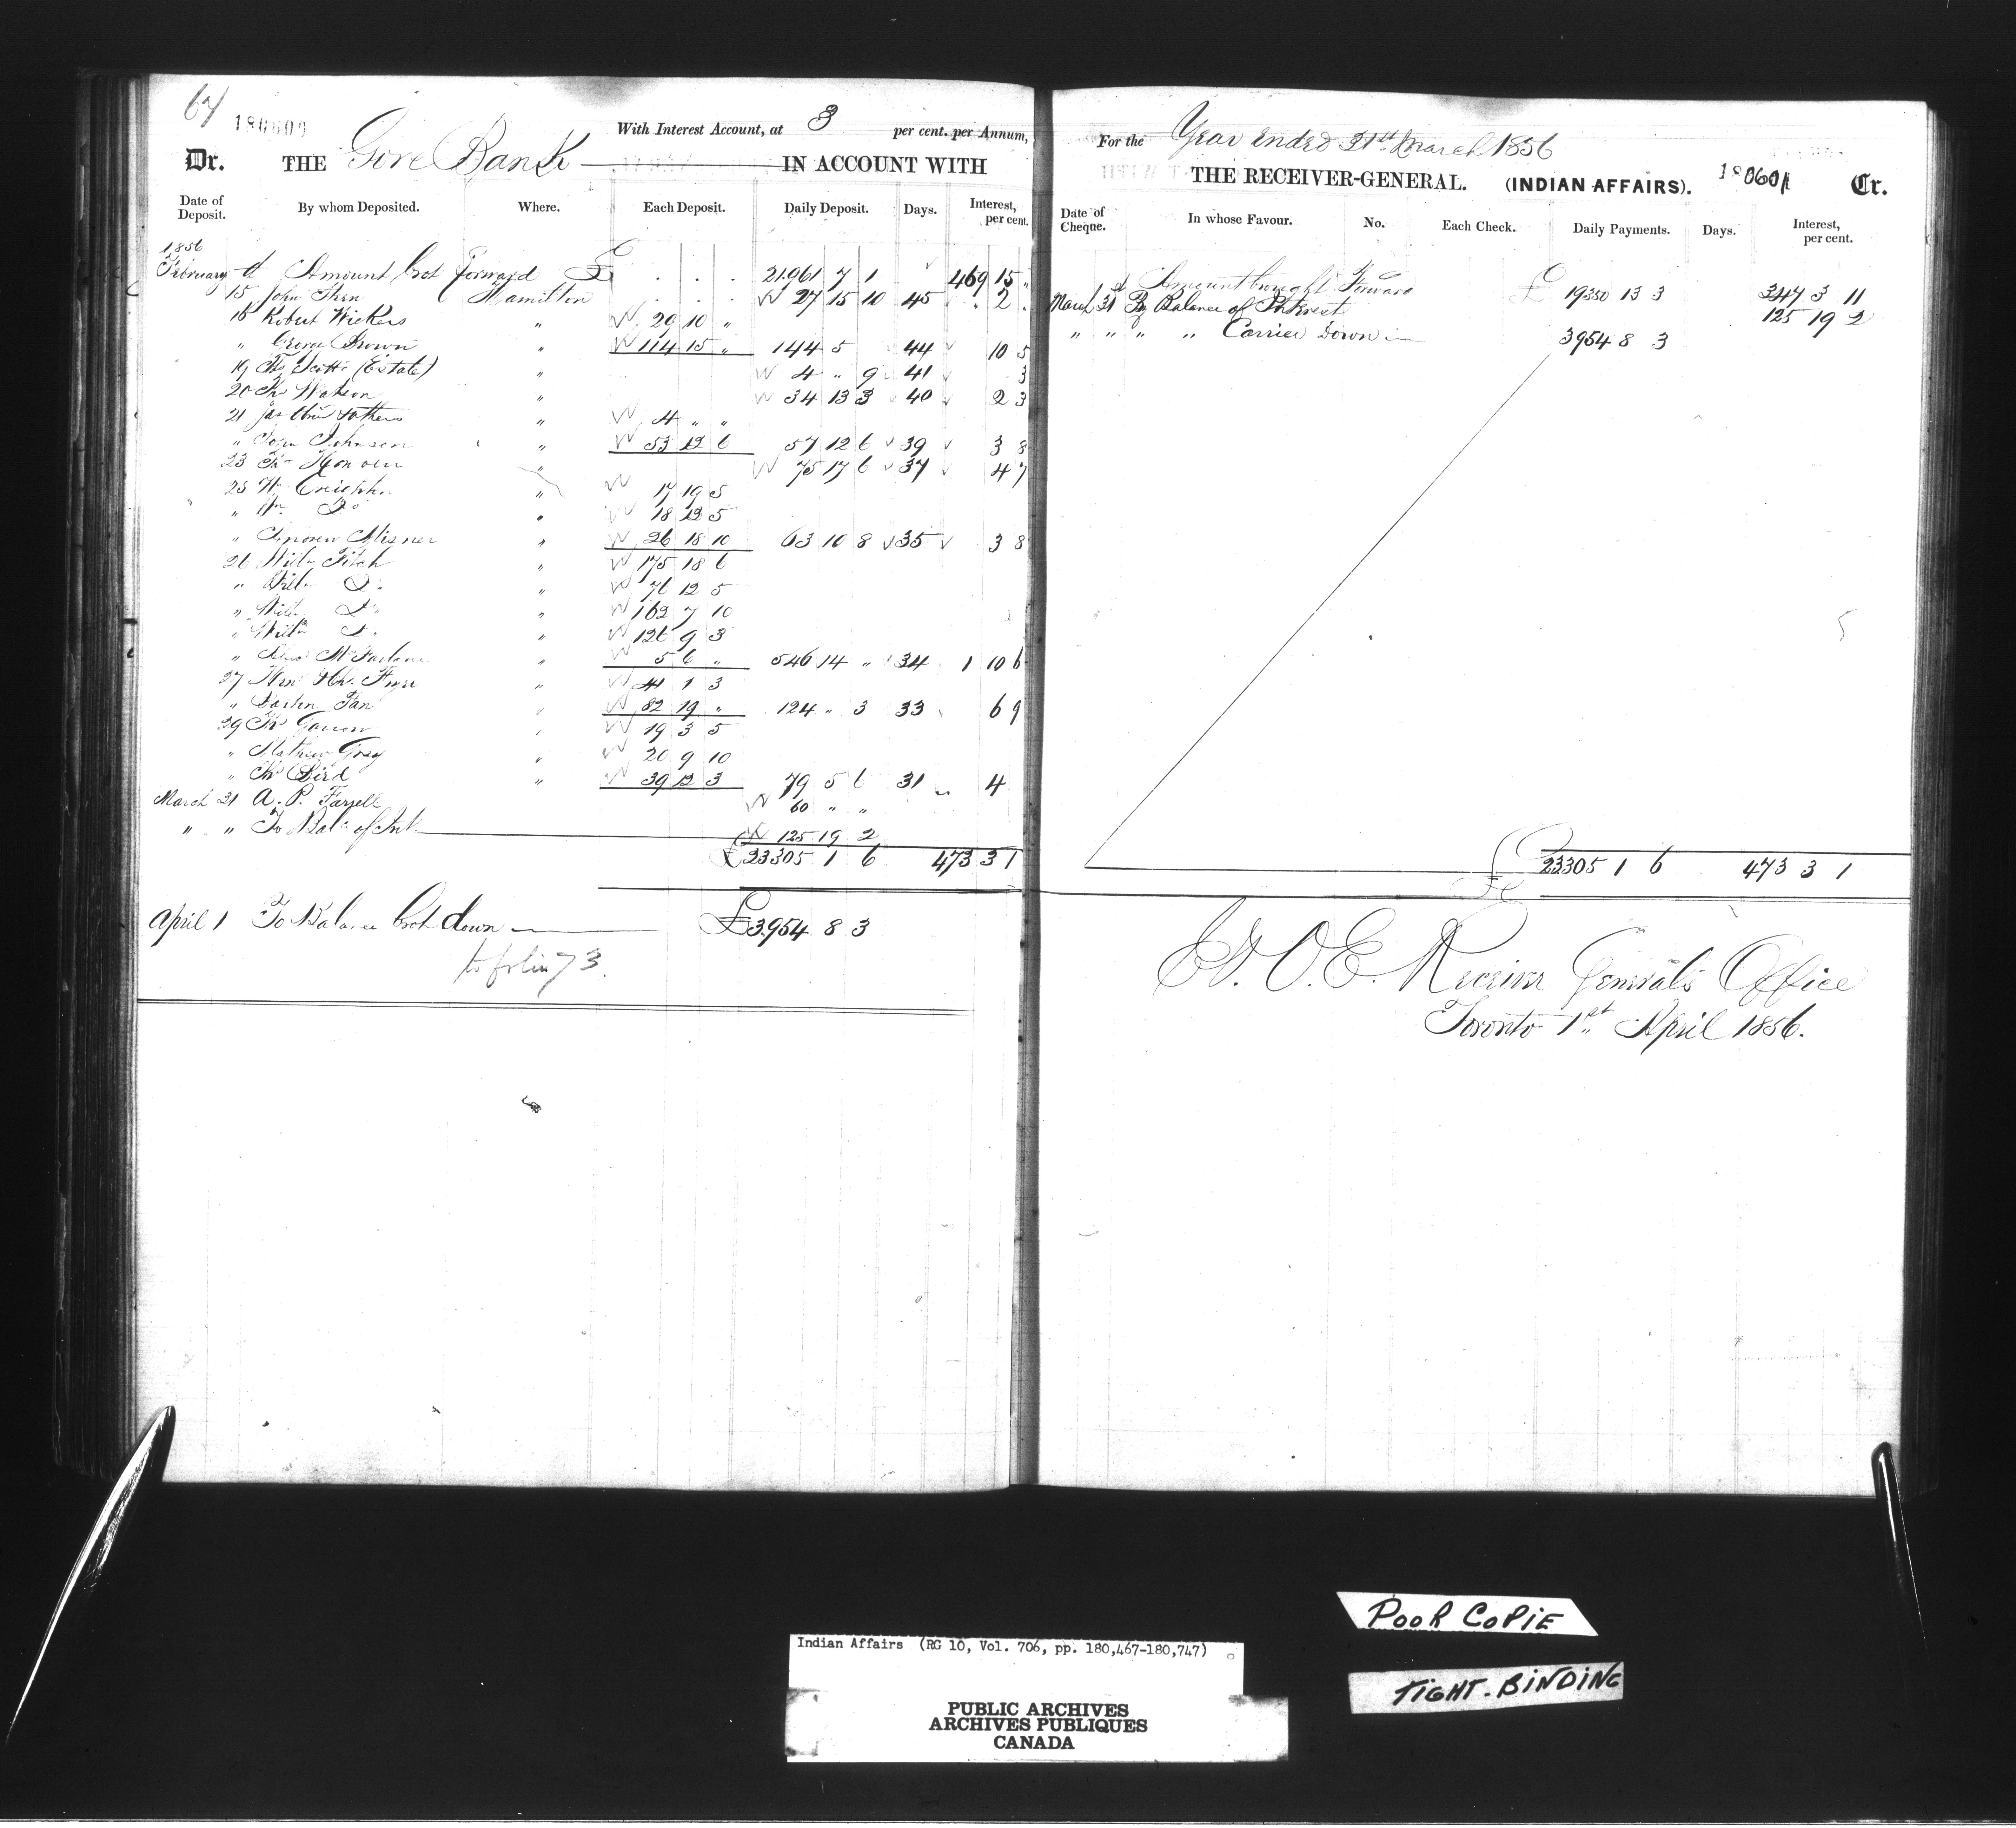 67
180600
With Interest Account, at 3 per cent. per Annum,
Dr. THE Gore Bank IN ACCOUNT WITH
Date of Deposit. By whom Deposited. Where. Each Deposit. Daily Deposit. Days. Interest, per cent.
1856
February Amount brot forward £ . . . 21961 7 1 469 15 "
15 John Hamilton . . . 27 15 10 45 . 2 .
16 Robert Wickers " 29 10 "
" George Brown " 114 15 " 144 5 44 10 5
19 Ths Scott (Estate) " 4 " 9 41 3
20 Watson " 34 13 3 40 2 3
21 Jas " 4 " "
" John Johnson " 53 12 6 57 12 6 39 3 8
23 " 75 17 6 37 4 7
25 Wm " 17 19 5
" Wm Do " 18 12 5
" Andrew Misner " 26 18 10 63 10 8 35 3 8
26 Willm Fitch " 175 18 6
" Willm Do " 76 12 5
" Willm Do " 162 7 10
" Willm Do " 126 9 3
" McFarlane " 5 6 " 546 14 " 34 1 10 6
27 " 41 1 3
" " 82 19 " 124 " 3 33 6 9
29 " 19 3 5
" Mathew Gray 20 9 10
" Bird " 39 12 3 79 5 6 31 4
March 31 A. P. Farrell 60 " "
" " To Balce of Int 125 19 2
£ 23305 1 6 473 3 1
April 1 To Balance brot down £3954 8 3
to folio 73.
For the Year ended 31st March 1856
THE RECEIVER-GENERAL. (INDIAN AFFAIRS). 180601 Cr.
Date of Cheque. In whose Favour. No. Each Check. Daily Payments. Days. Interest, per cent.
Amount brought Forward £ 19350 13 3 347 3 11
March 31 By Balance of Interest 125 19 2
" " " " Carried Down 3954 8 3
£ 23305 1 6 473 3 1
E. & O. E. Receiver General's Office
Toronto 1st April 1856.
POOR COPIE
TIGHT-BINDING
Indian Affairs (RG 10, Vol. 706, pp. 180,467-180,747)
PUBLIC ARCHIVES
ARCHIVES PUBLIQUES
CANADA